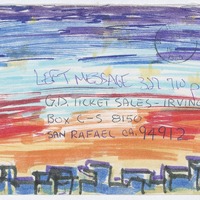 LEFT MESSAGE 3
G.D. TICKET SALES - IRVINE
BOX C-S 8150
SAN RAFAEL CA. 94912